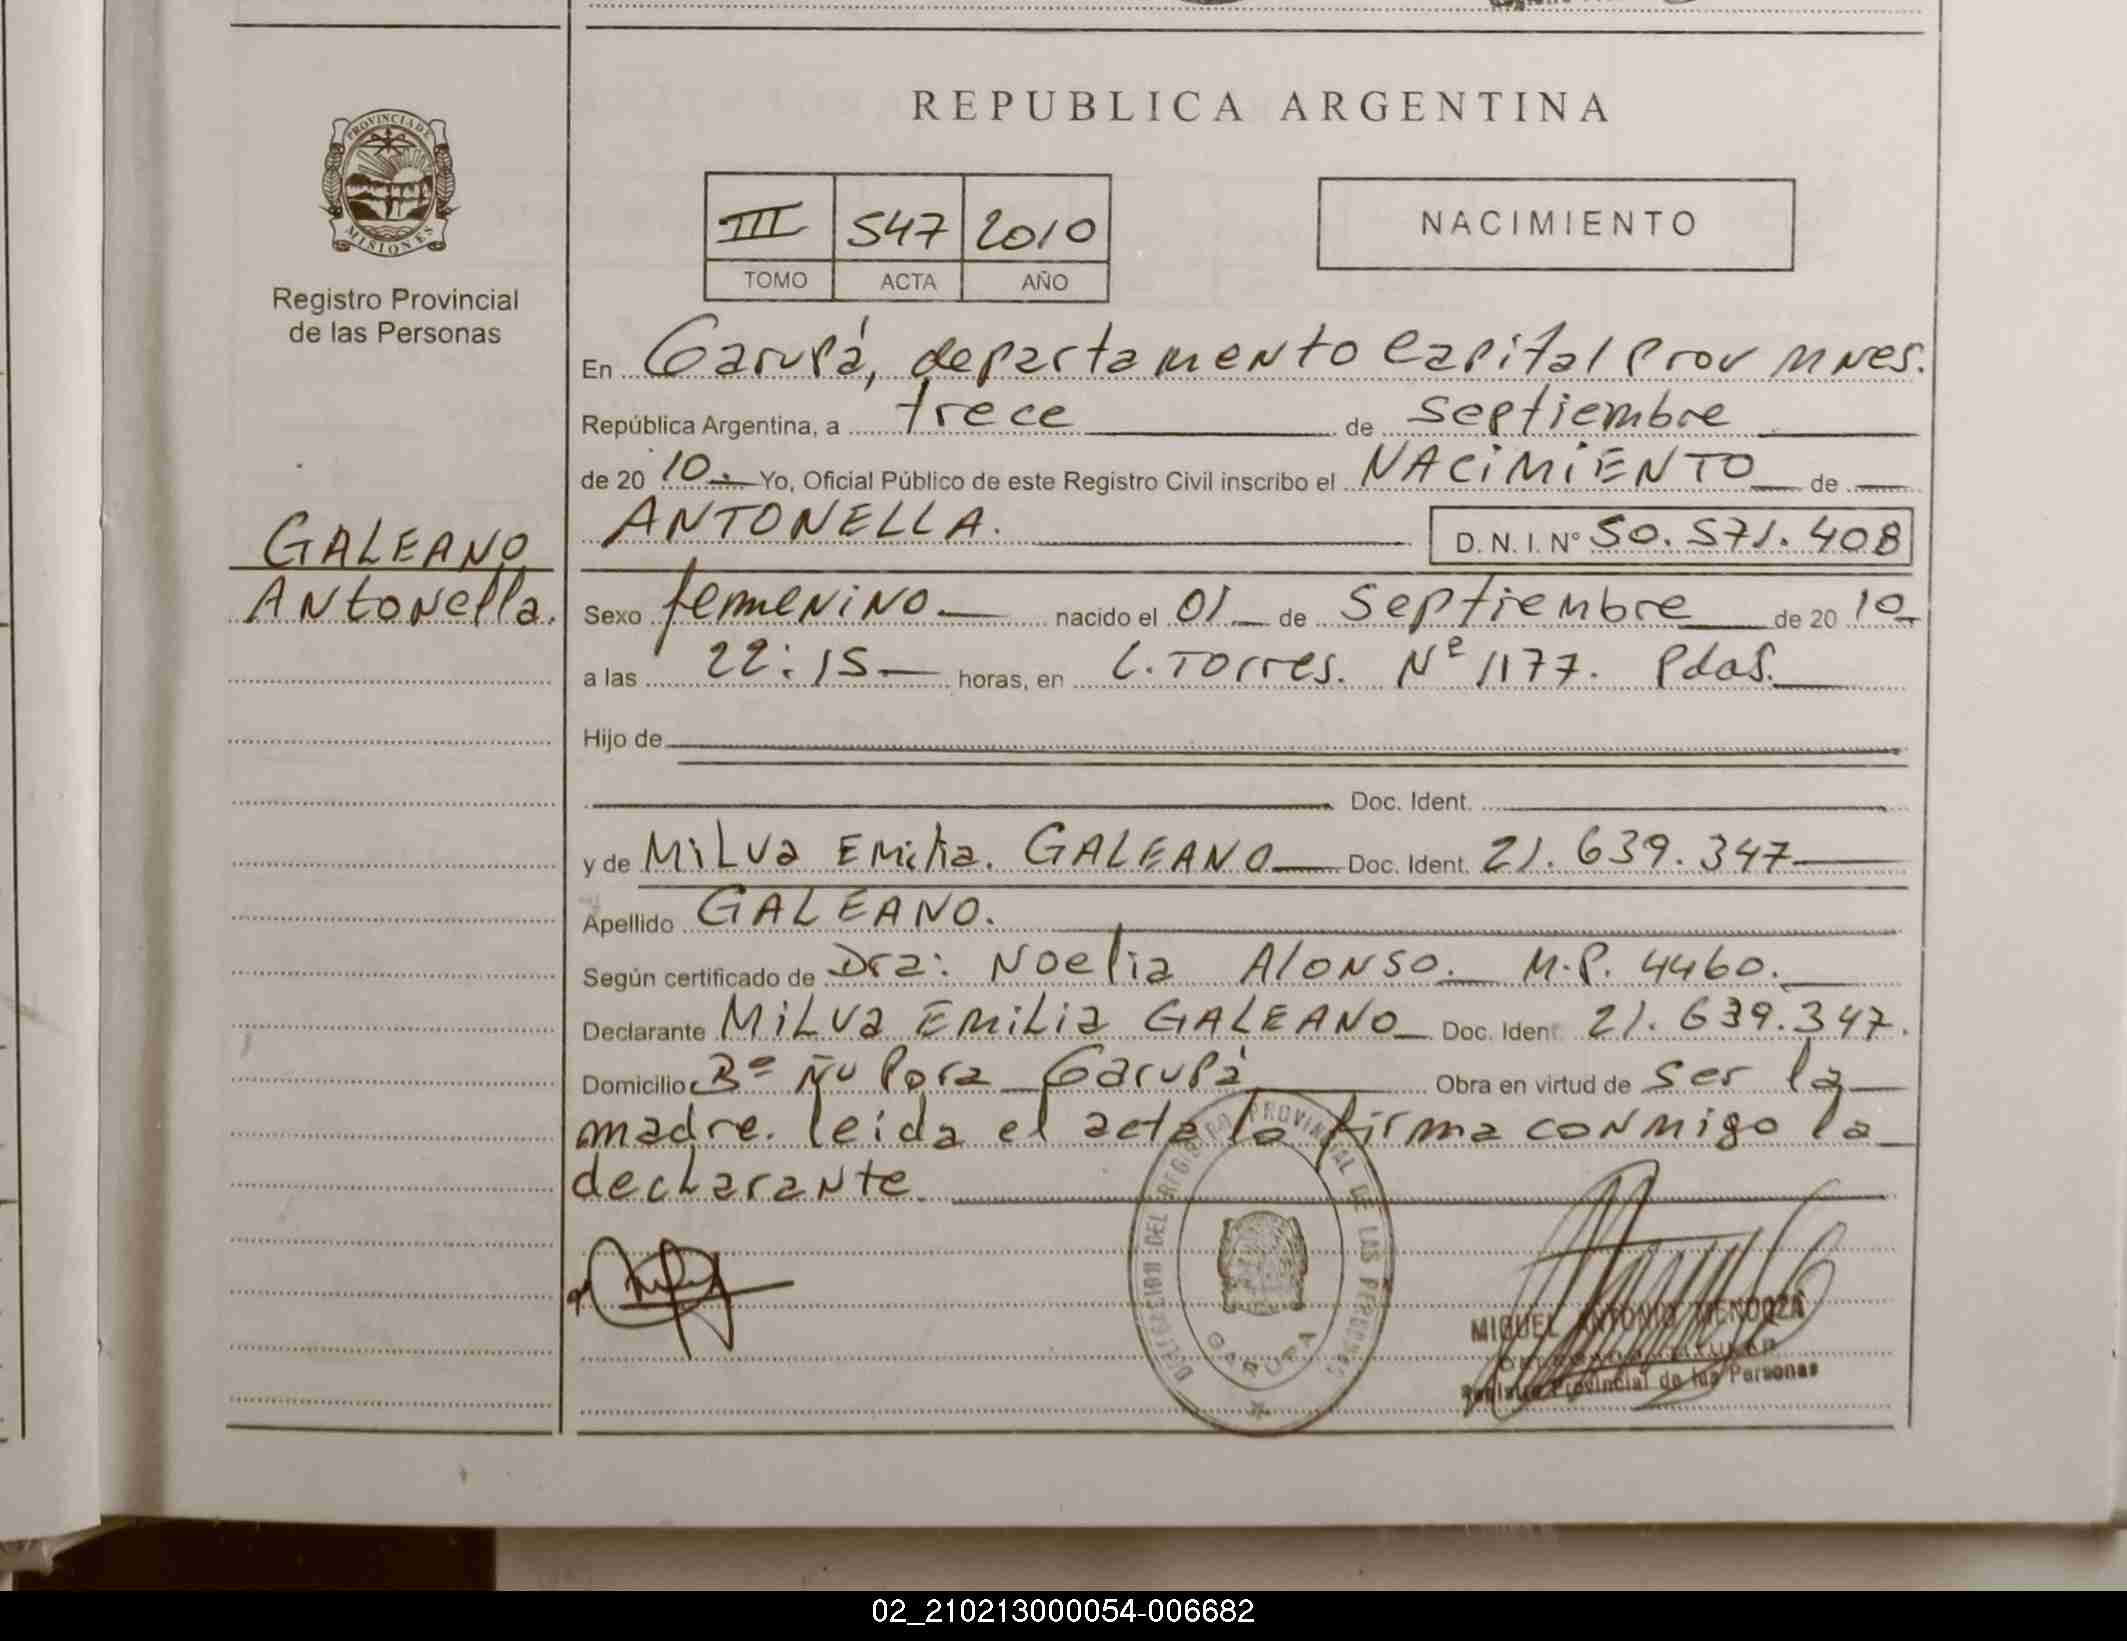 REPUBLICA ARGENTINA
PROVINCIA DE
MISIONES
Registro Provincial
de las Personas
III 547 2010
TOMO ACTA AÑO
NACIMIENTO
En Garupá, departamento Capital Prov Mnes.
República Argentina, a trece de septiembre
de 20 10. Yo, Oficial Público de este Registro Civil inscribo el NACIMIENTO de
ANTONELLA. D. N. I. N° 50.571.408
GALEANO
Antonella.
Sexo femenino nacido el 01 de Septiembre de 20 10
a las 22:15 horas, en L. Torres. Nº 1177. Pdas.
Hijo de
Doc. Ident.
y de Milva Emilia. GALEANO Doc. Ident. 21.639.347
Apellido GALEANO.
Según certificado de Dra: Noelia Alonso. M.P. 4460.
Declarante Milva Emilia GALEANO Doc. Ident 21.639.347.
Domicilio Bº Ñu Pora Garupá Obra en virtud de ser la
madre. leida el acta la firma conmigo la
declarante.
DELEGACION DEL REGISTRO PROVINCIAL DE LAS PERSONAS
GARUPA
MIGUEL ANTONIO MENDOZA
Registro Provincial de las Personas
02_210213000054-006682